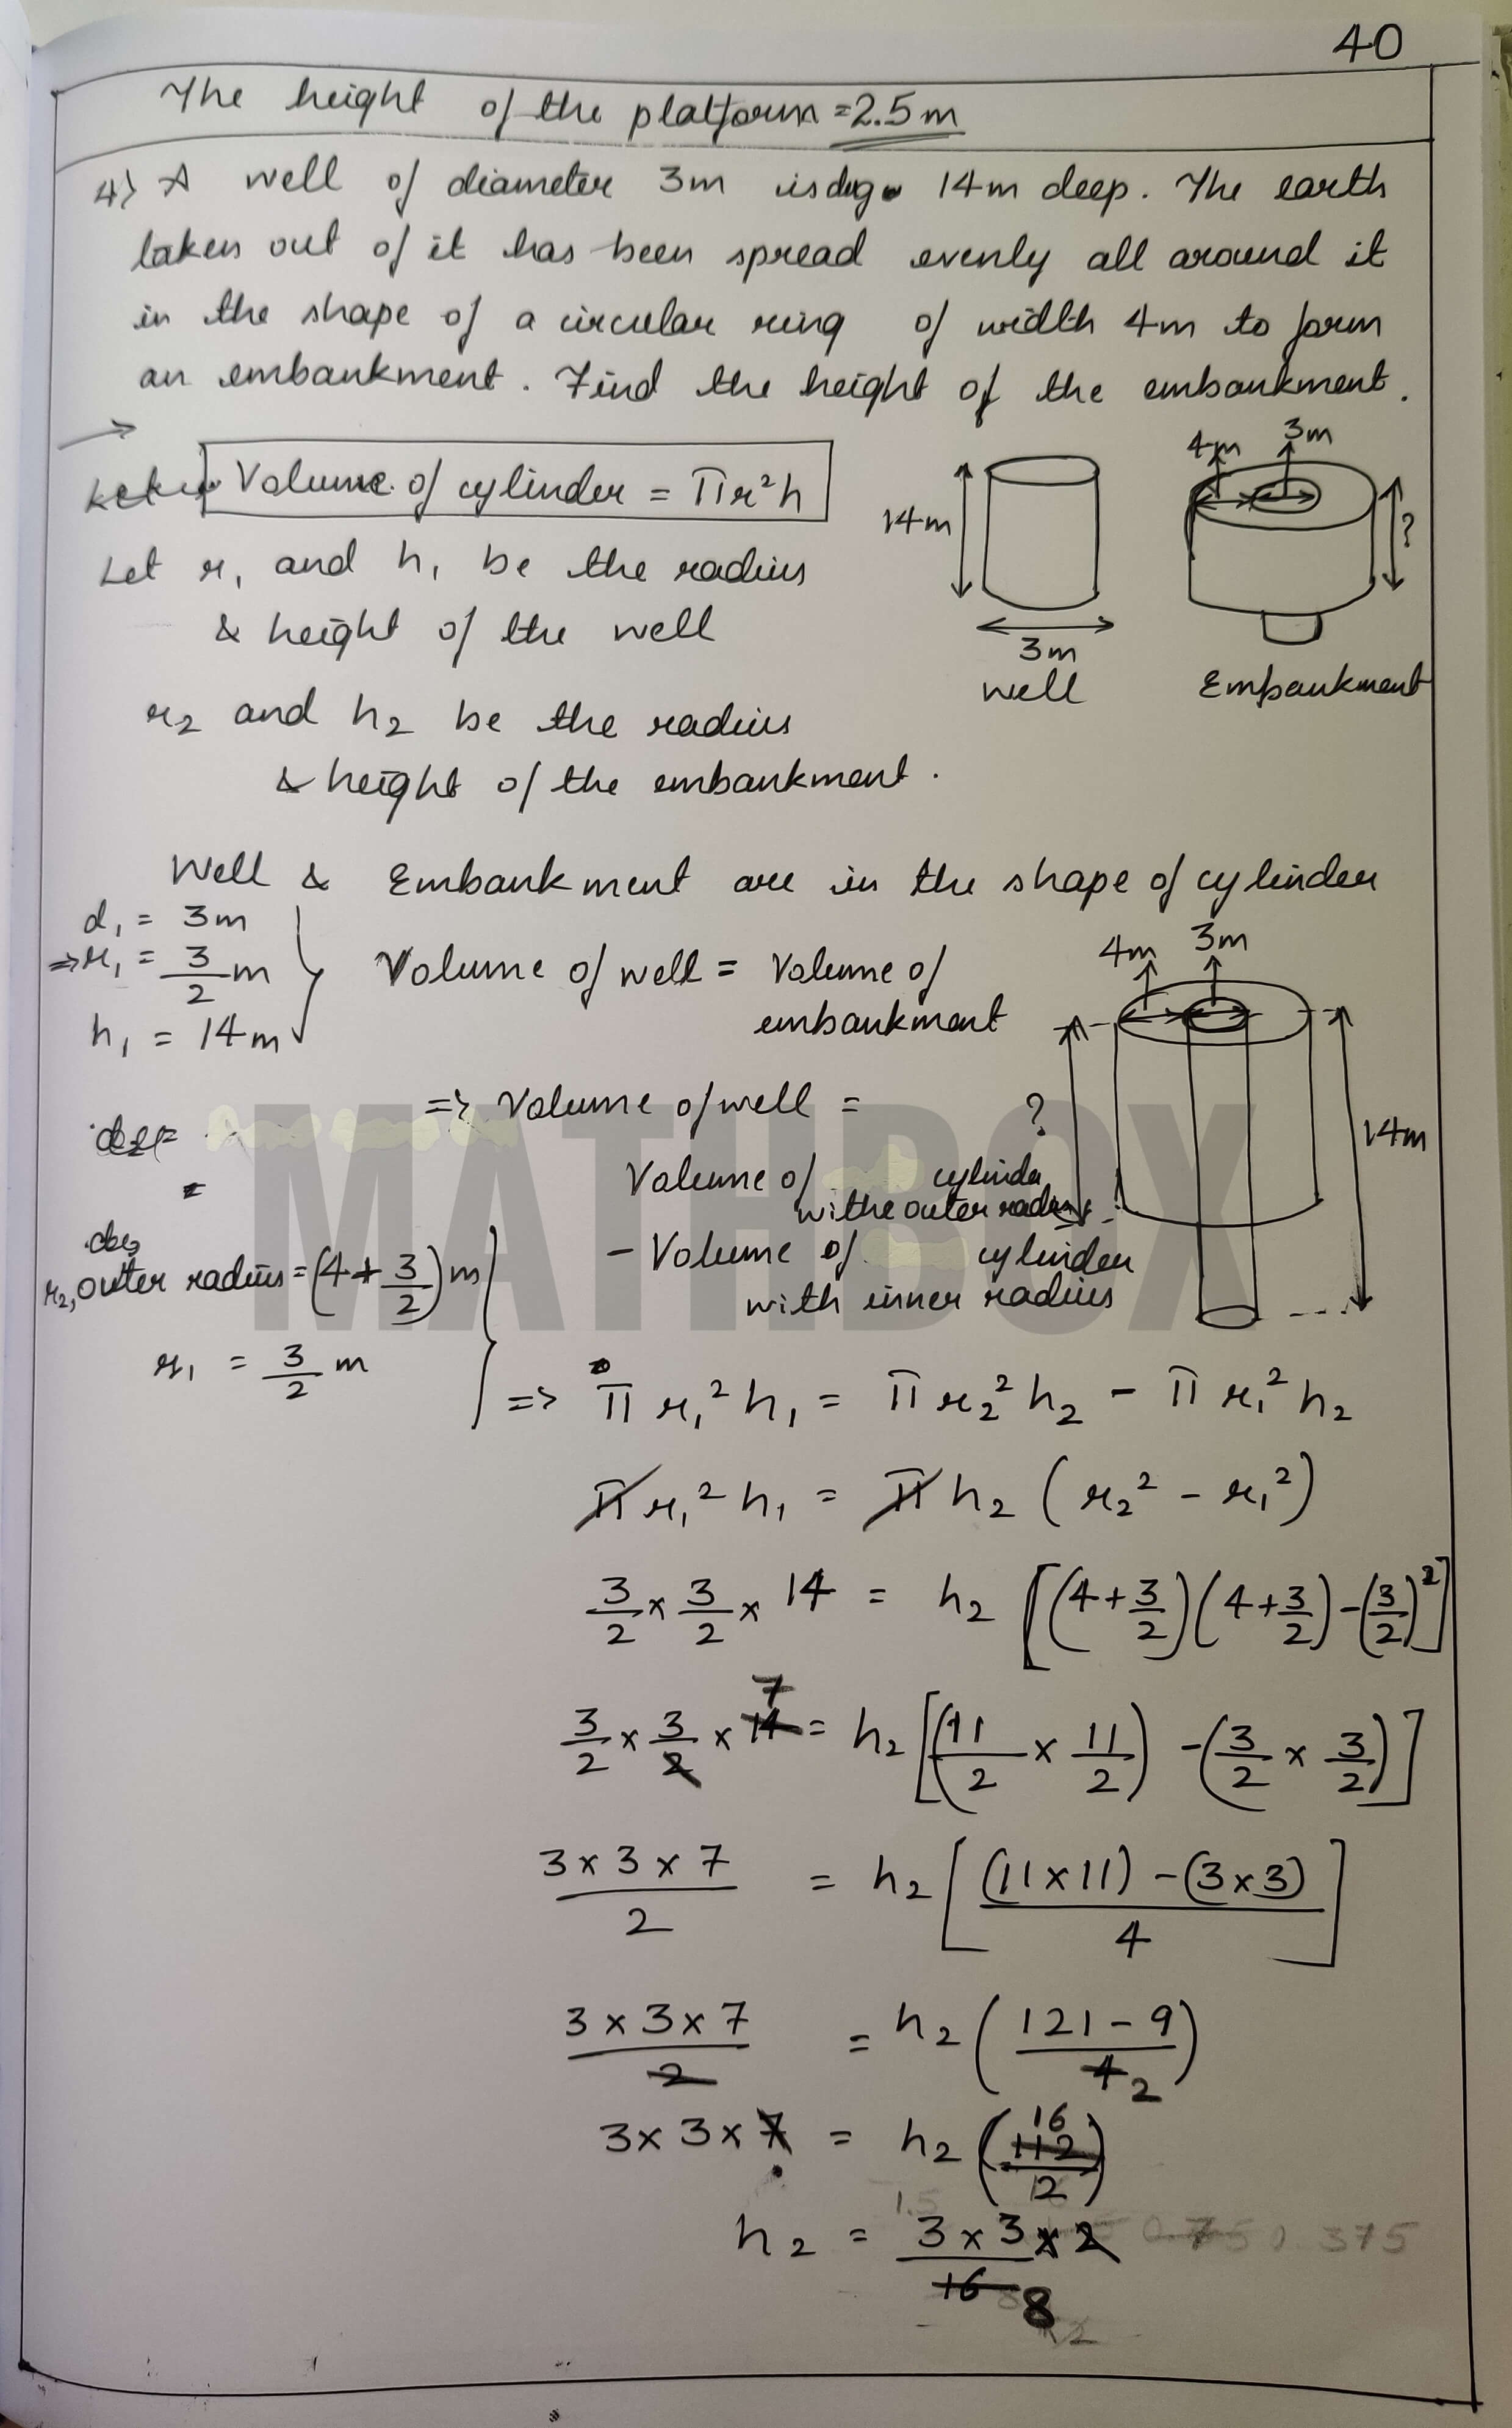 40
The height of the platform = 2.5 m
4) A well of diameter 3m is dug 14m deep. The earth
taken out of it has been spread evenly all around it
in the shape of a circular ring of width 4m to form
an embankment. Find the height of the embankment.
Volume of cylinder = πr²h
4m 3m
14m
?
Let r₁ and h₁ be the radius
& height of the well
3m
Well
Embankment
r₂ and h₂ be the radius
& height of the embankment.
Well & Embankment are in the shape of cylinder
d₁ = 3m
⇒ r₁ = 3/2 m
h₁ = 14m
Volume of well = Volume of
embankment
4m 3m
⇒ Volume of well =
?
14m
Volume of cylinder
with outer radius
- Volume of cylinder
with inner radius
r₂, outer radius = (4 + 3/2) m
r₁ = 3/2 m
⇒ π r₁² h₁ = π r₂² h₂ - π r₁² h₂
π r₁² h₁ = π h₂ (r₂² - r₁²)
3/2 × 3/2 × 14 = h₂ [(4 + 3/2)(4 + 3/2) - (3/2)²]
3/2 × 3/2 × 14 7 = h₂ [(11/2 × 11/2) - (3/2 × 3/2)]
3 × 3 × 7 / 2 = h₂ [(11 × 11) - (3 × 3) / 4]
3 × 3 × 7 / 2 = h₂ (121 - 9 / 4 2)
3 × 3 × 7 = h₂ (112 16 / 2)
h₂ = 3 × 3 × 2 / 16 8
MATHBOX